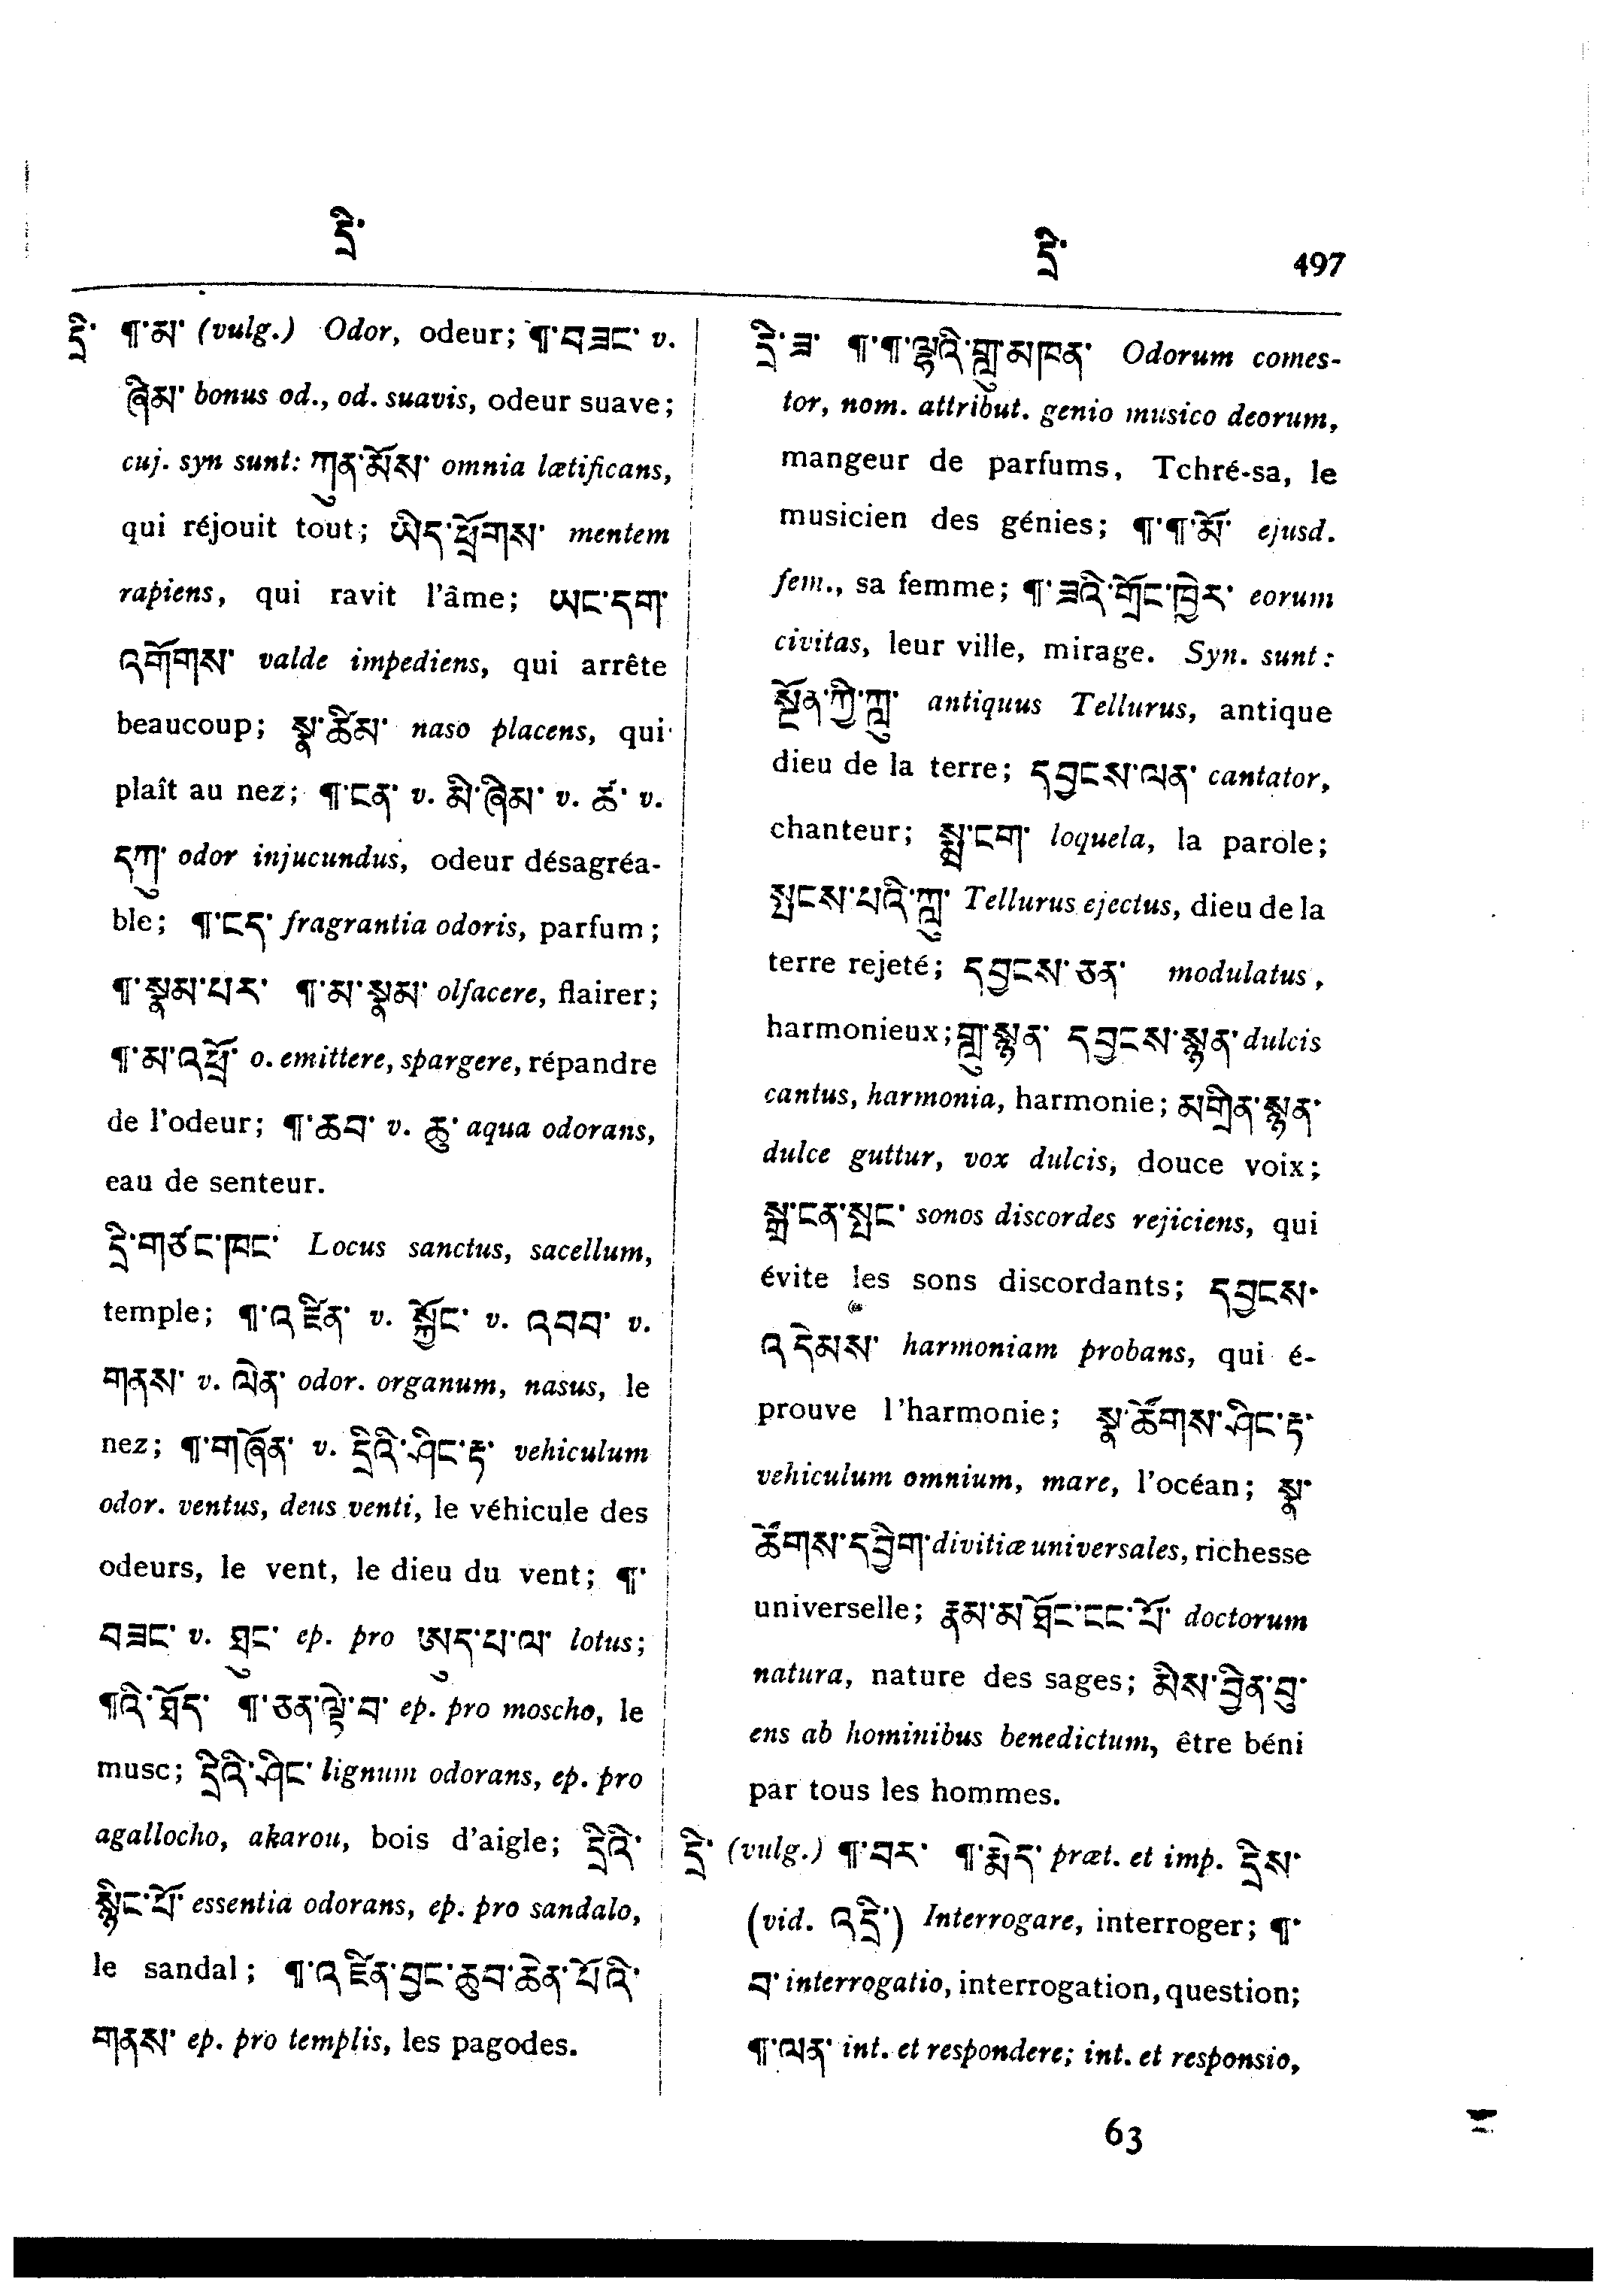 དྲི་
དྲི་ 497
དྲི་ ¶་མ་ (vulg.) Odor, odeur; ¶་བཟང་ v.
ཞིམ་ bonus od., od. suavis, odeur suave;
cuj. syn sunt: ཀུན་མོས་ omnia lætificans,
qui réjouit tout; ཡིད་ཕྲོགས་ mentem
rapiens, qui ravit l'âme; ཡང་དག་
འགོགས་ valde impediens, qui arrête
beaucoup; སྣ་ཚིམ་ naso placens, qui
plaît au nez; ¶་ངན་ v. མི་ཞིམ་ v. ཚ་ v.
དཀུ་ odor injucundus, odeur désagréa-
ble; ¶་ངད་ fragrantia odoris, parfum;
¶་སྣམ་པར་ ¶་མ་སྣམ་ olfacere, flairer;
¶་མ་འཕྲོ་ o. emittere, spargere, répandre
de l'odeur; ¶་ཆབ་ v. ཆུ་ aqua odorans,
eau de senteur.
དྲི་གཙང་ཁང་ Locus sanctus, sacellum,
temple; ¶་འཛིན་ v. སྐྱོང་ v. འབབ་ v.
གནས་ v. ལེན་ odor. organum, nasus, le
nez; ¶་གཞོན་ v. དྲིའི་ཤིང་རྟ་ vehiculum
odor. ventus, deus venti, le véhicule des
odeurs, le vent, le dieu du vent; ¶་
བཟང་ v. ཐུང་ ep. pro ཨུད་པ་ལ་ lotus;
¶འི་ཐོད་ ¶་ཅན་ལྟེ་བ་ ep. pro moscho, le
musc; དྲིའི་ཤིང་ lignum odorans, ep. pro
agallocho, akarou, bois d'aigle; དྲིའི་
སྙིང་པོ་ essentia odorans, ep. pro sandalo,
le sandal; ¶་འཛིན་བྱང་ཆུབ་ཆེན་པོའི་
གནས་ ep. pro templis, les pagodes.
དྲི་ཟ་ ¶་¶་ལྷའི་གླུ་མཁན་ Odorum comes-
tor, nom. attribut. genio musico deorum,
mangeur de parfums, Tchré-sa, le
musicien des génies; ¶་¶་མོ་ ejusd.
fem., sa femme; ¶་ཟའི་གྲོང་ཁྱེར་ eorum
civitas, leur ville, mirage. Syn. sunt:
སྔོན་ཀྱི་ཀླུ་ antiquus Tellurus, antique
dieu de la terre; དབྱངས་ལན་ cantator,
chanteur; སྨྲ་ངག་ loquela, la parole;
སྤངས་པའི་ཀླུ་ Tellurus ejectus, dieu de la
terre rejeté; དབྱངས་ཅན་ modulatus,
harmonieux; གླུ་སྙན་ དབྱངས་སྙན་ dulcis
cantus, harmonia, harmonie; མགྲིན་སྙན་
dulce guttur, vox dulcis, douce voix;
སྒྲ་ངན་སྤང་ sonos discordes rejiciens, qui
évite les sons discordants; དབྱངས་
འདེམས་ harmoniam probans, qui é-
prouve l'harmonie; སྣ་ཚོགས་ཤིང་རྟ་
vehiculum omnium, mare, l'océan; སྣ་
ཚོགས་དབྱིག་ divitiæ universales, richesse
universelle; རྣམ་མཐོང་ངང་པོ་ doctorum
natura, nature des sages; མིས་བྱིན་བུ་
ens ab hominibus benedictum, être béni
par tous les hommes.
དྲི་ (vulg.) ¶་བར་ ¶་རྨེད་ præt. et imp. དྲིས་
(vid. འདྲི་) Interrogare, interroger; ¶་
བ་ interrogatio, interrogation, question;
¶་ལན་ int. et respondere; int. et responsio,
63